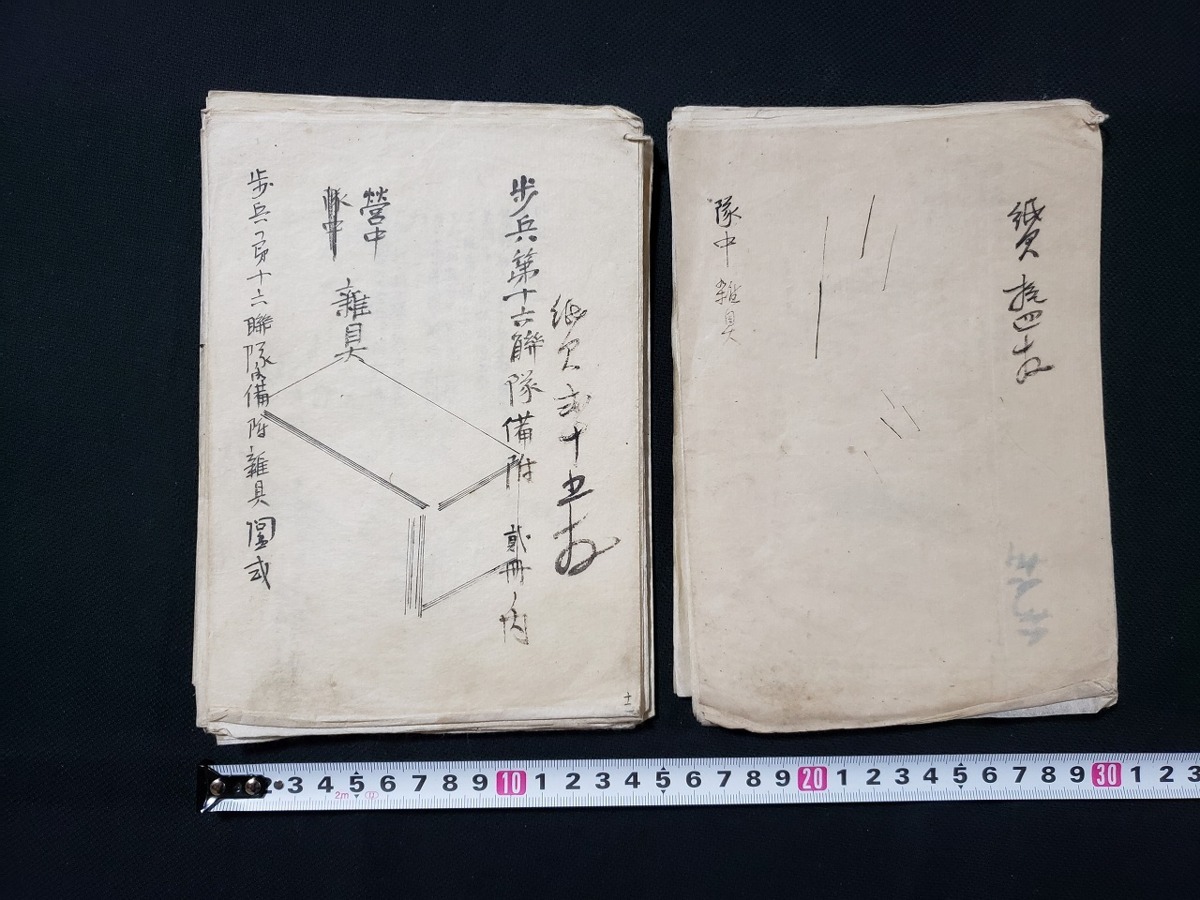 紙員 弐十五枚
歩兵第十六聯隊備附 貳冊ノ内
營中
隊中
雜具
歩兵第十六聯隊備附雜具圖式
十二
紙員 拾四枚
隊中 雜具
2 3 4 5 6 7 8 9 10 1 2 3 4 5 6 7 8 9 20 1 2 3 4 5 6 7 8 9 30 1 2 3
2m